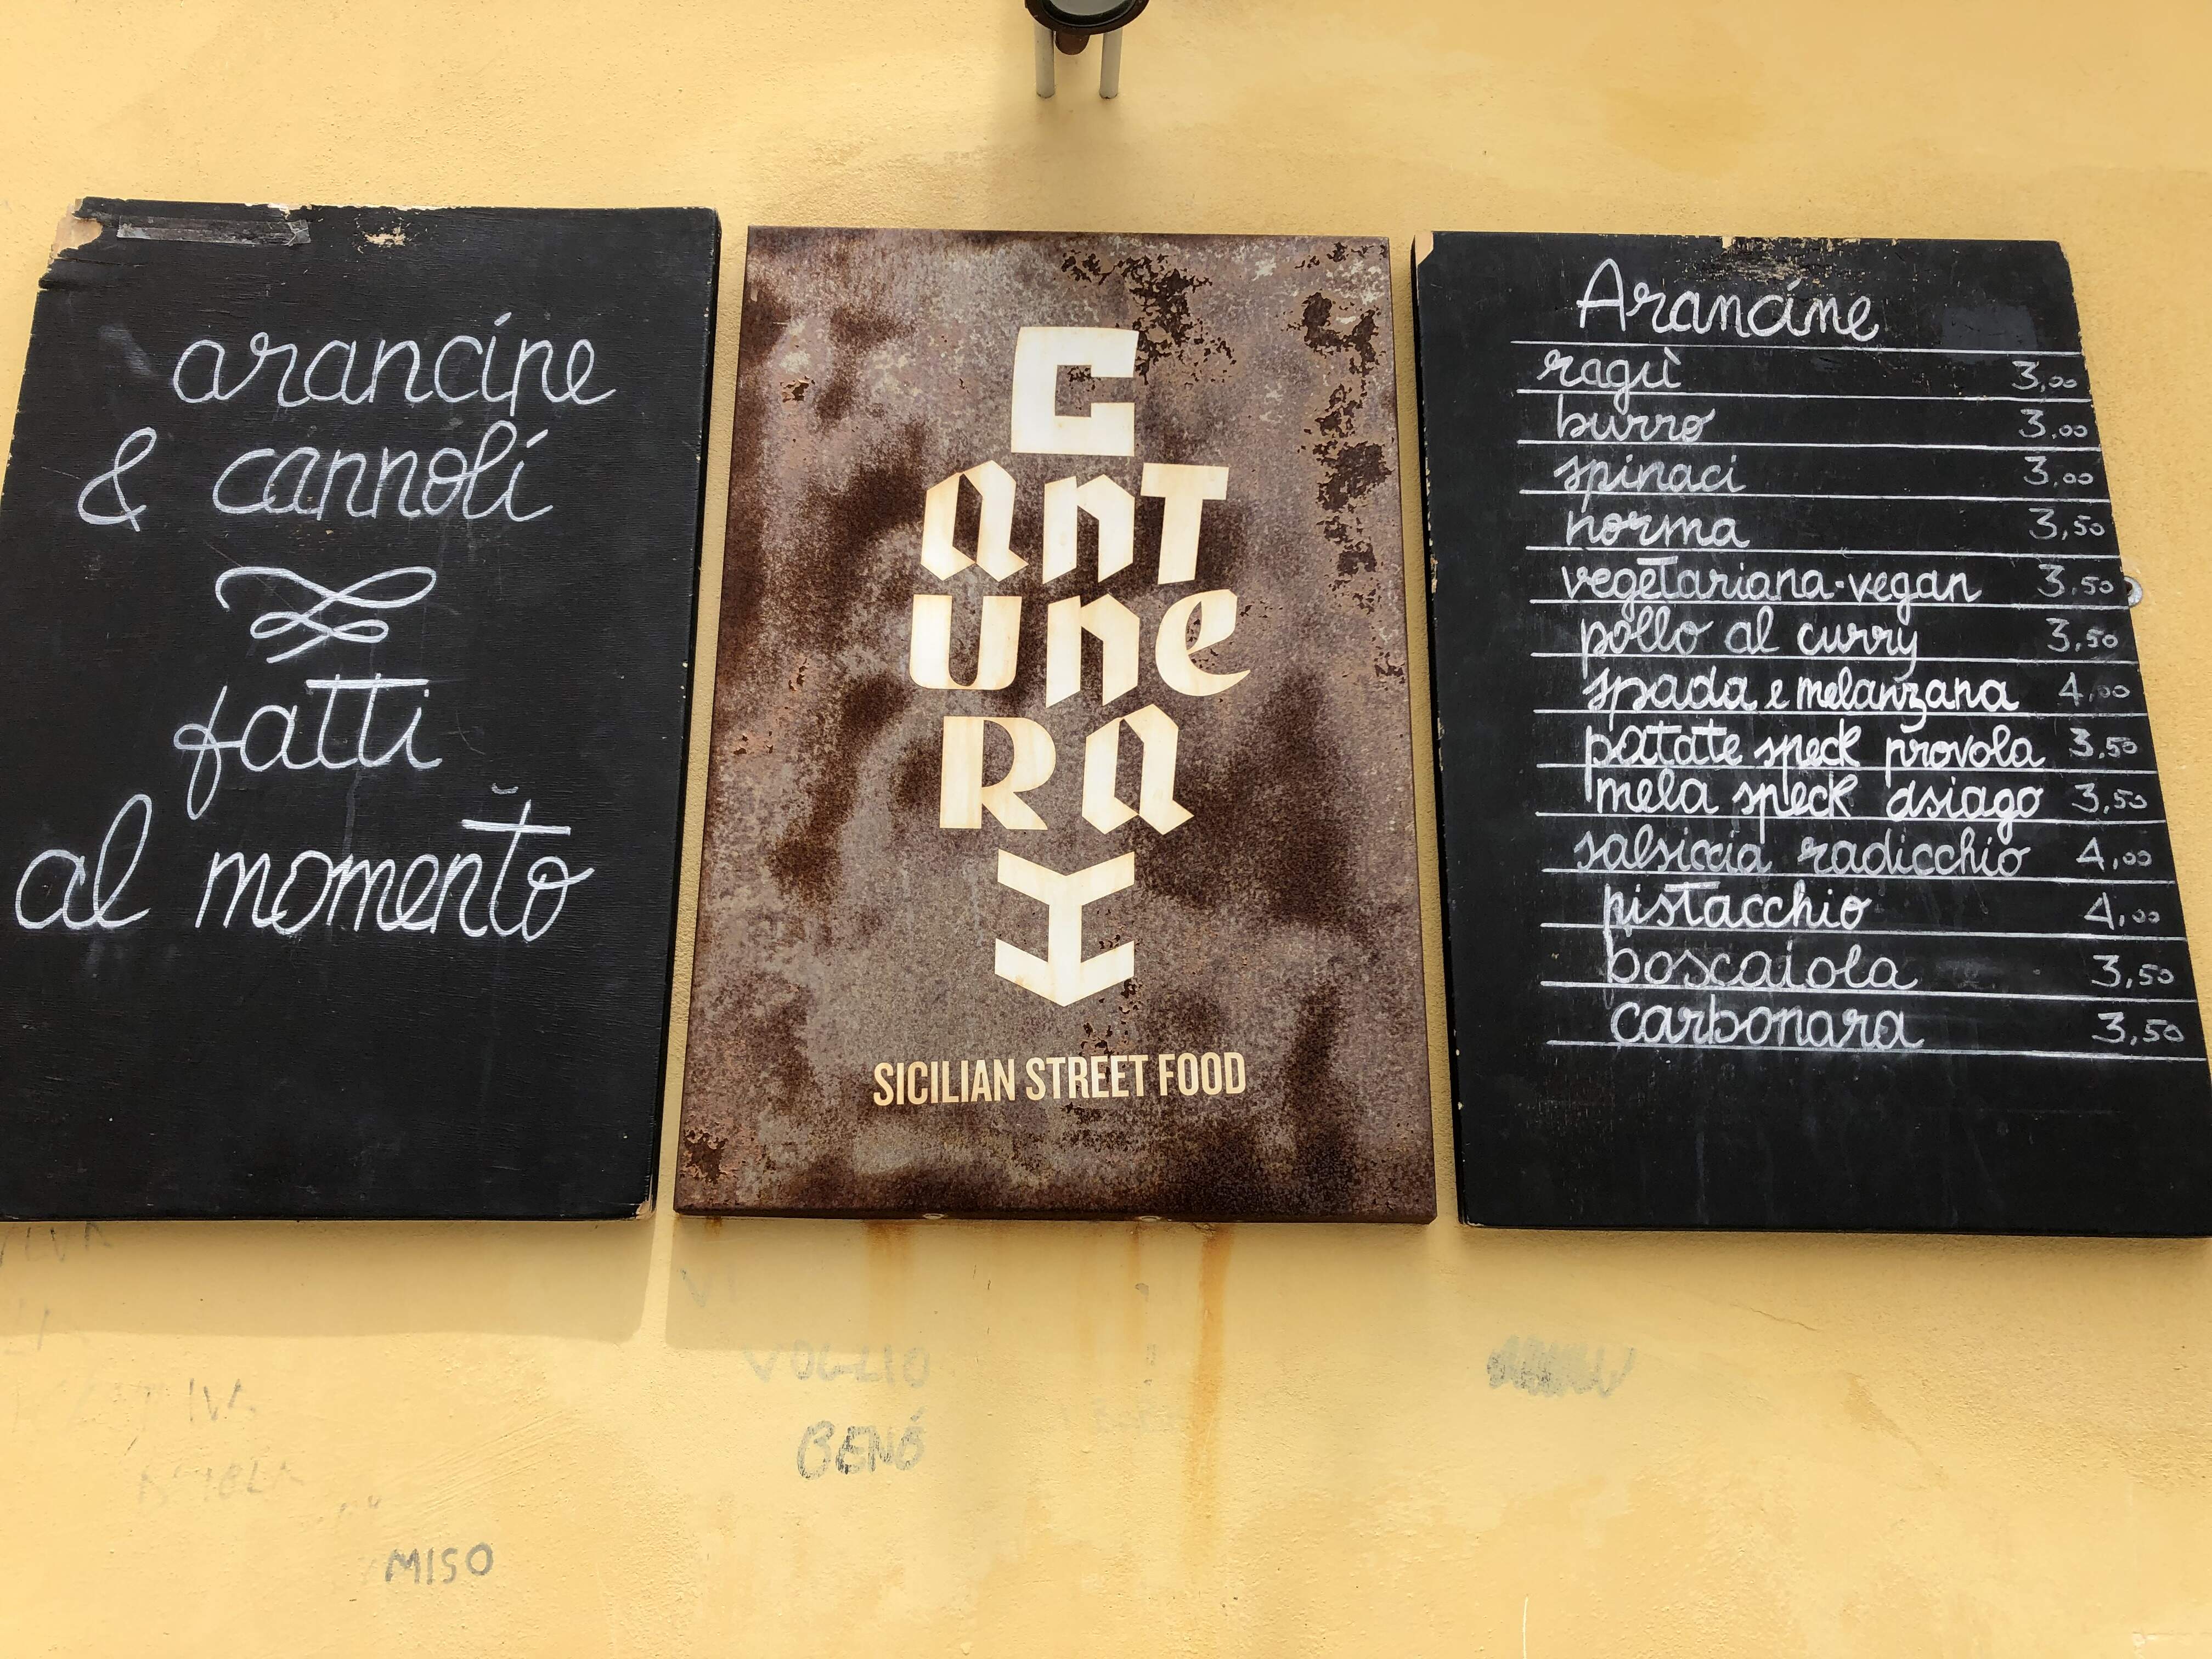 arancine
& cannoli
fatti
al momento
C
anT
une
Ra
SICILIAN STREET FOOD
Arancine
ragù 3,00
burro 3,00
spinaci 3,00
norma 3,50
vegetariana-vegan 3,50
pollo al curry 3,50
spada e melanzana 4,00
patate speck provola 3,50
mela speck asiago 3,50
salsiccia radicchio 4,00
pistacchio 4,00
boscaiola 3,50
carbonara 3,50
VOGLIO
BENE
MISO